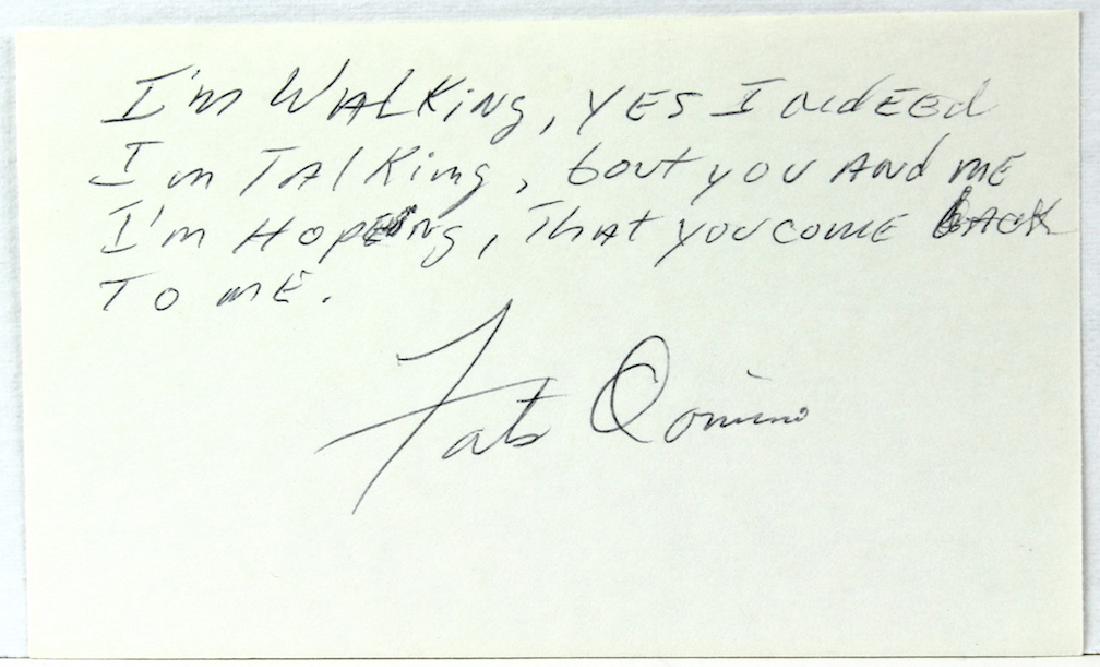 I'm WALKing, YES Indeed
I'm TAlKing, bout you And mE
I'm HopEing, That you come bACK
To mE.
Fats Domino